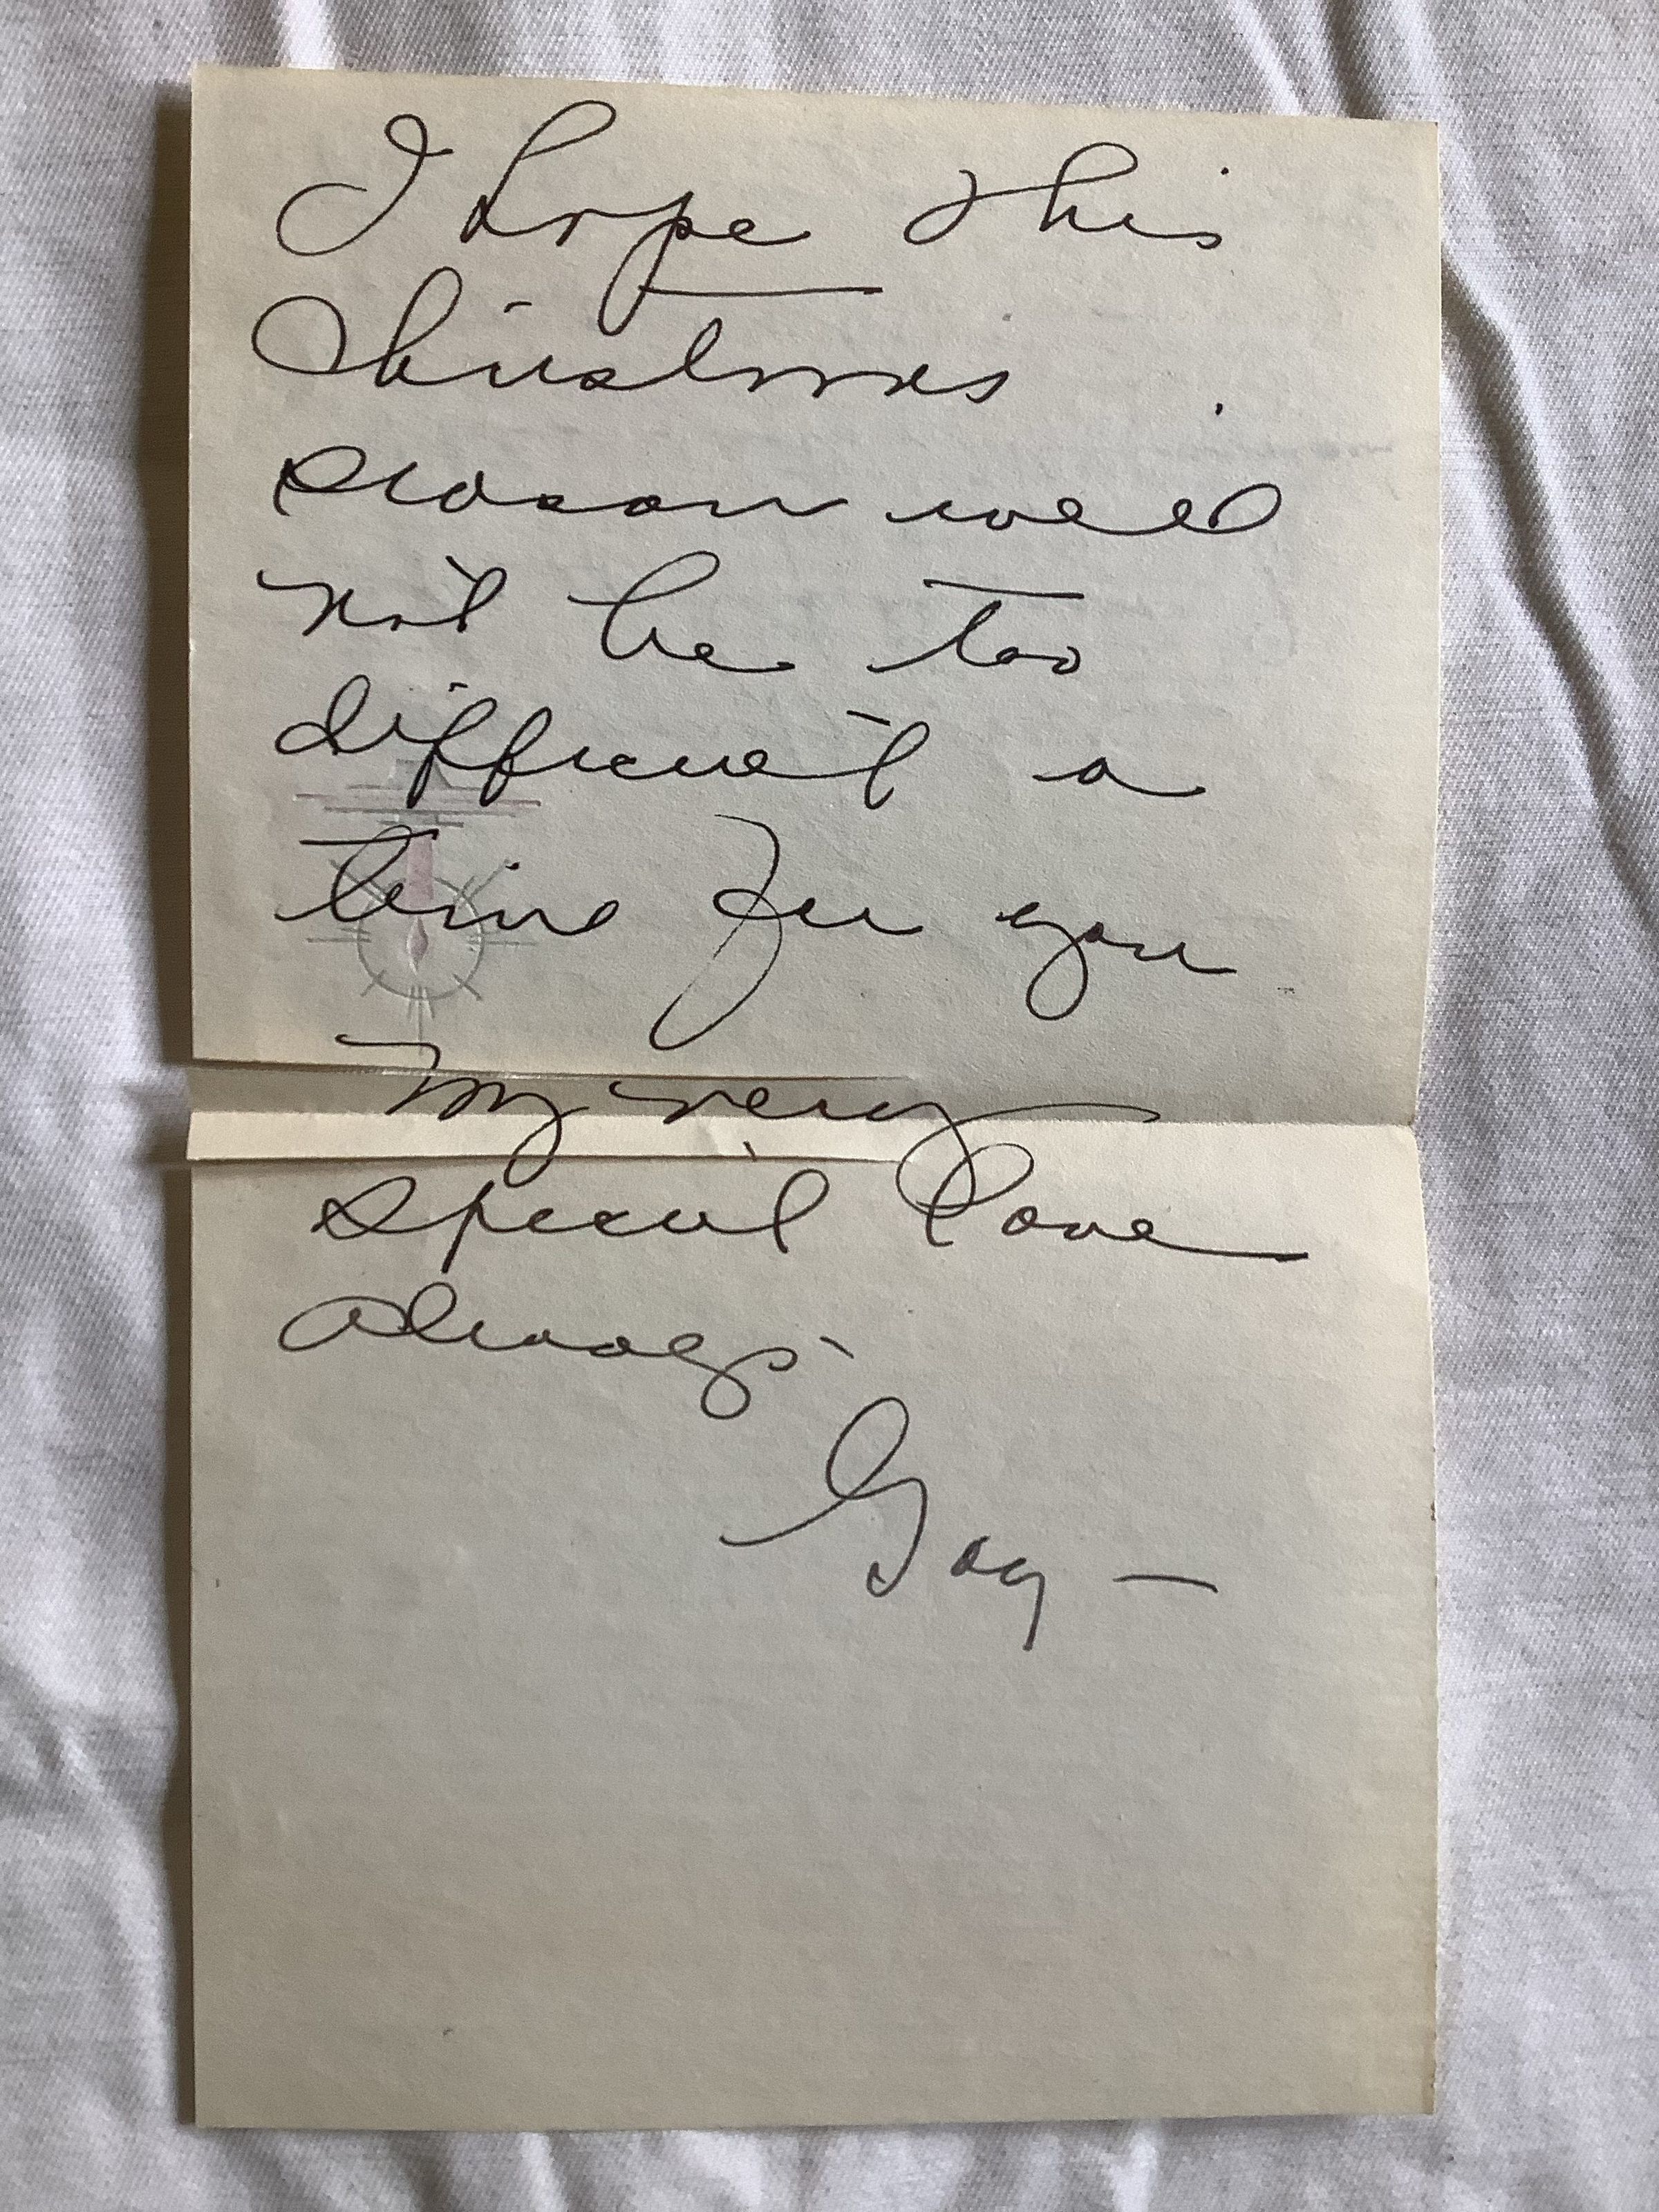 I hope this
Christmas
season will
not be too
difficult a
time for you
My very
special Love
always
Gay —